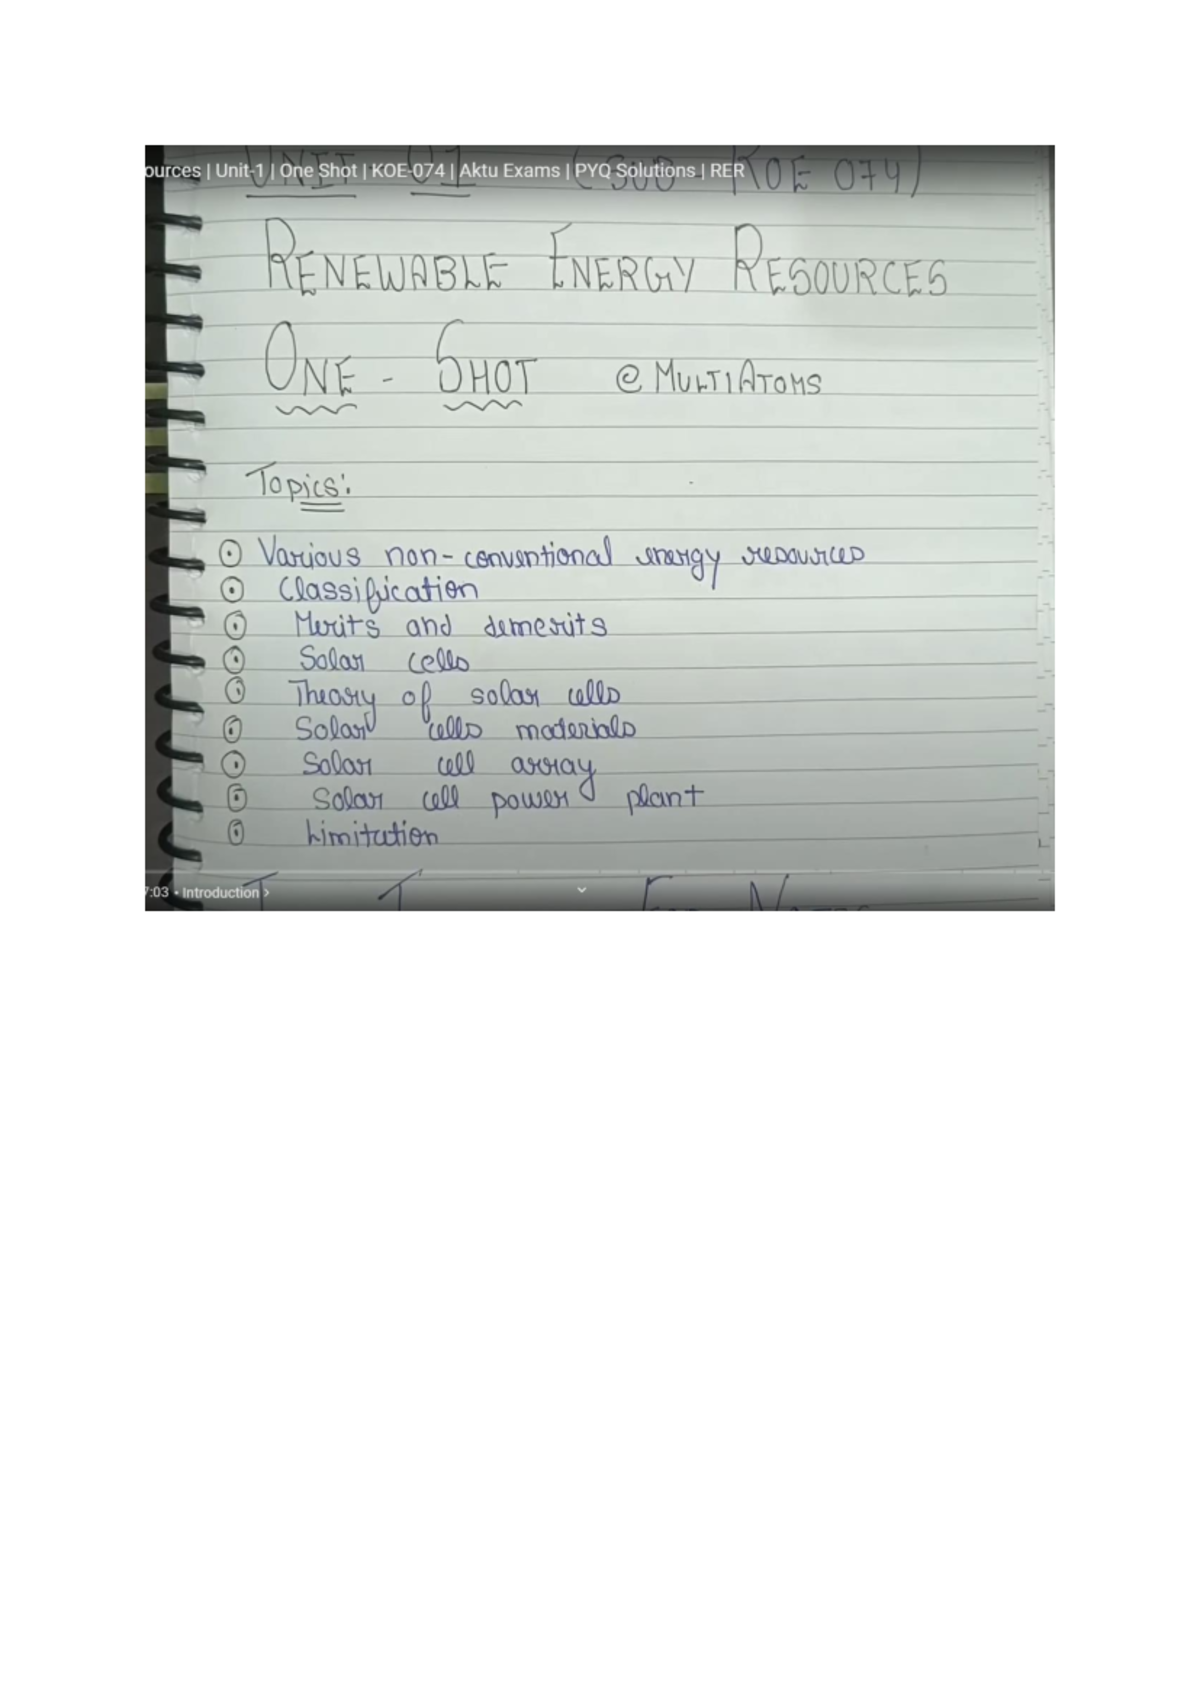 ources | Unit-1 | One Shot | KOE-074 | Aktu Exams | PYQ Solutions | RER
UNIT 01 (SUB KOE 074)
RENEWABLE ENERGY RESOURCES
ONE - SHOT @MULTIATOMS
Topics:
Various non-conventional energy resources
Classification
Merits and demerits
Solar cells
Theory of solar cells
Solar cells materials
Solar cell array
Solar cell power plant
Limitation
7:03 • Introduction >